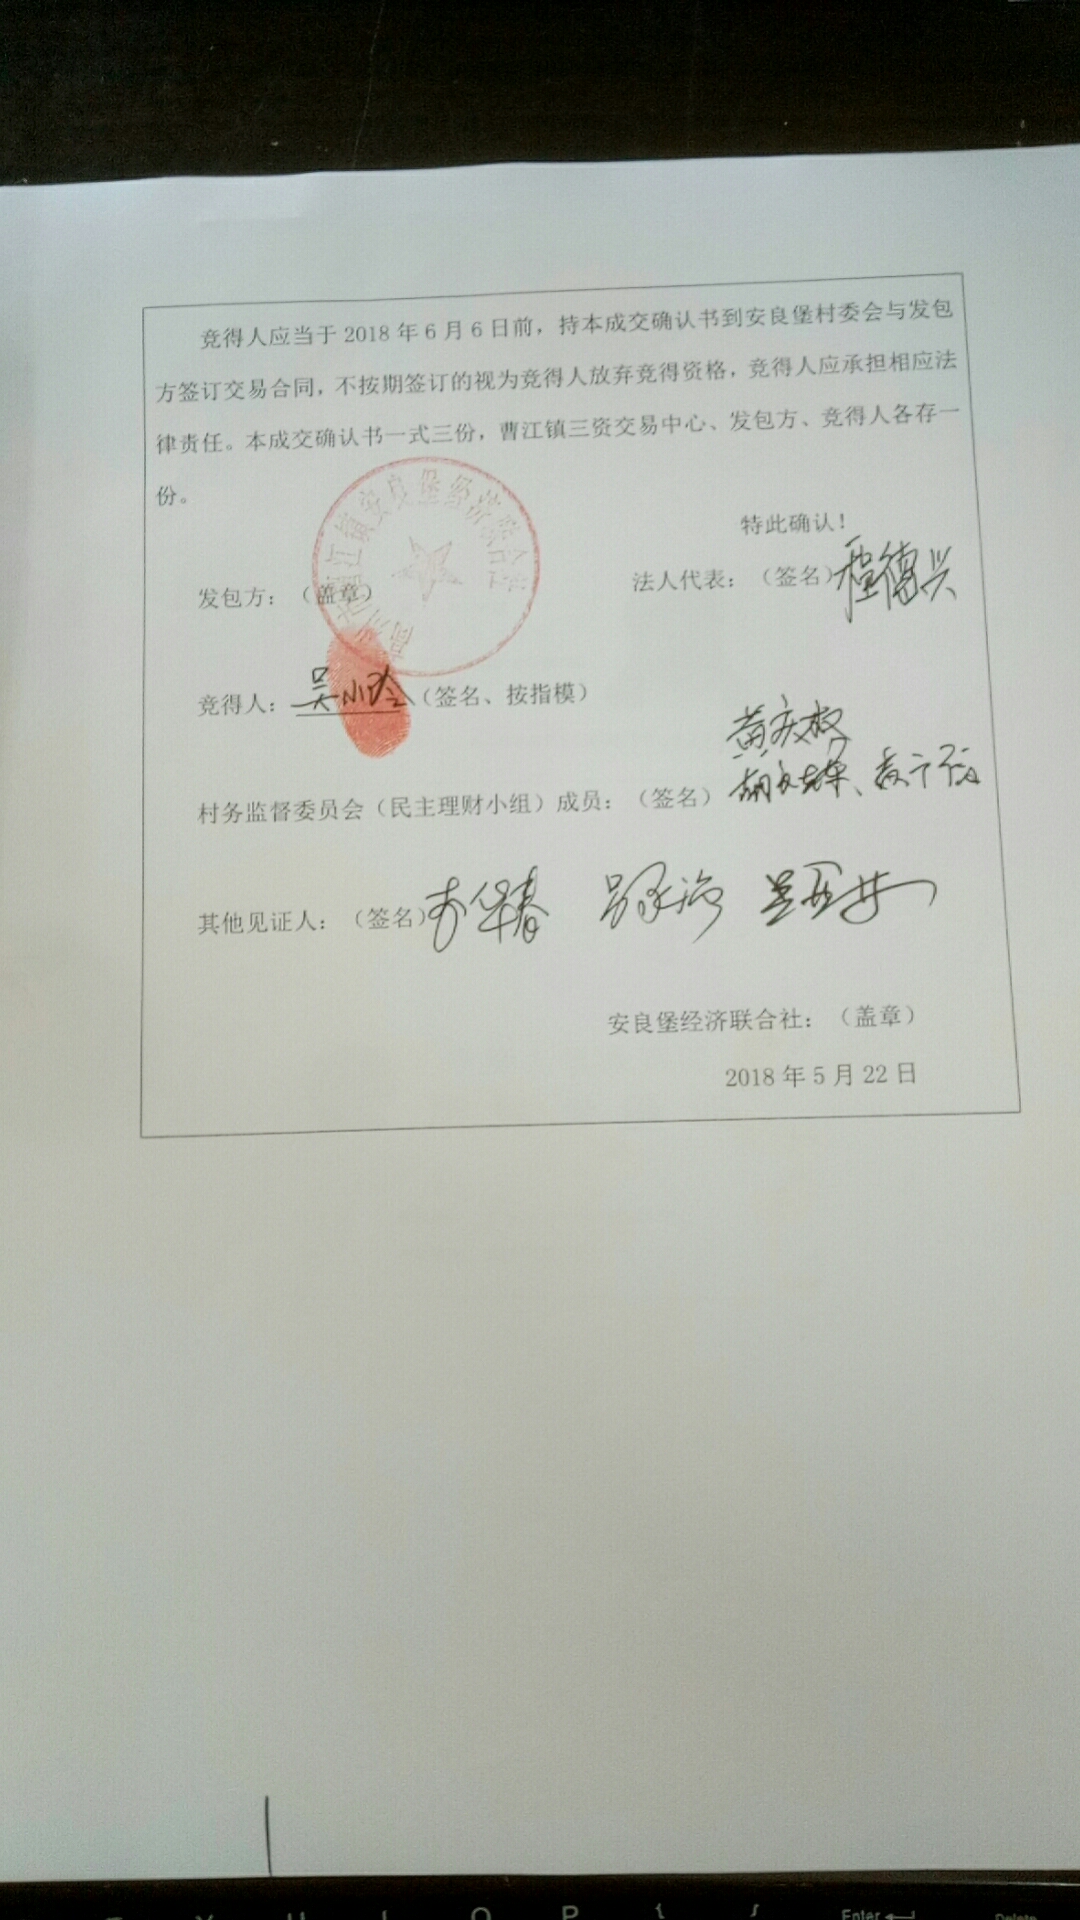 竞得人应当于 2018 年 6 月 6 日前，持本成交确认书到安良堡村委会与发包
方签订交易合同，不按期签订的视为竞得人放弃竞得资格，竞得人应承担相应法
律责任。本成交确认书一式三份，曹江镇三资交易中心、发包方、竞得人各存一
份。
特此确认！
江镇安良堡经济联合社
发包方：（盖章）
法人代表：（签名）德兴
竞得人：吴小玲（签名、按指模）
黄庆权
村务监督委员会（民主理财小组）成员：（签名）
其他见证人：（签名）李华春
安良堡经济联合社：（盖章）
2018 年 5 月 22 日
Y U I O P { } Enter Delete